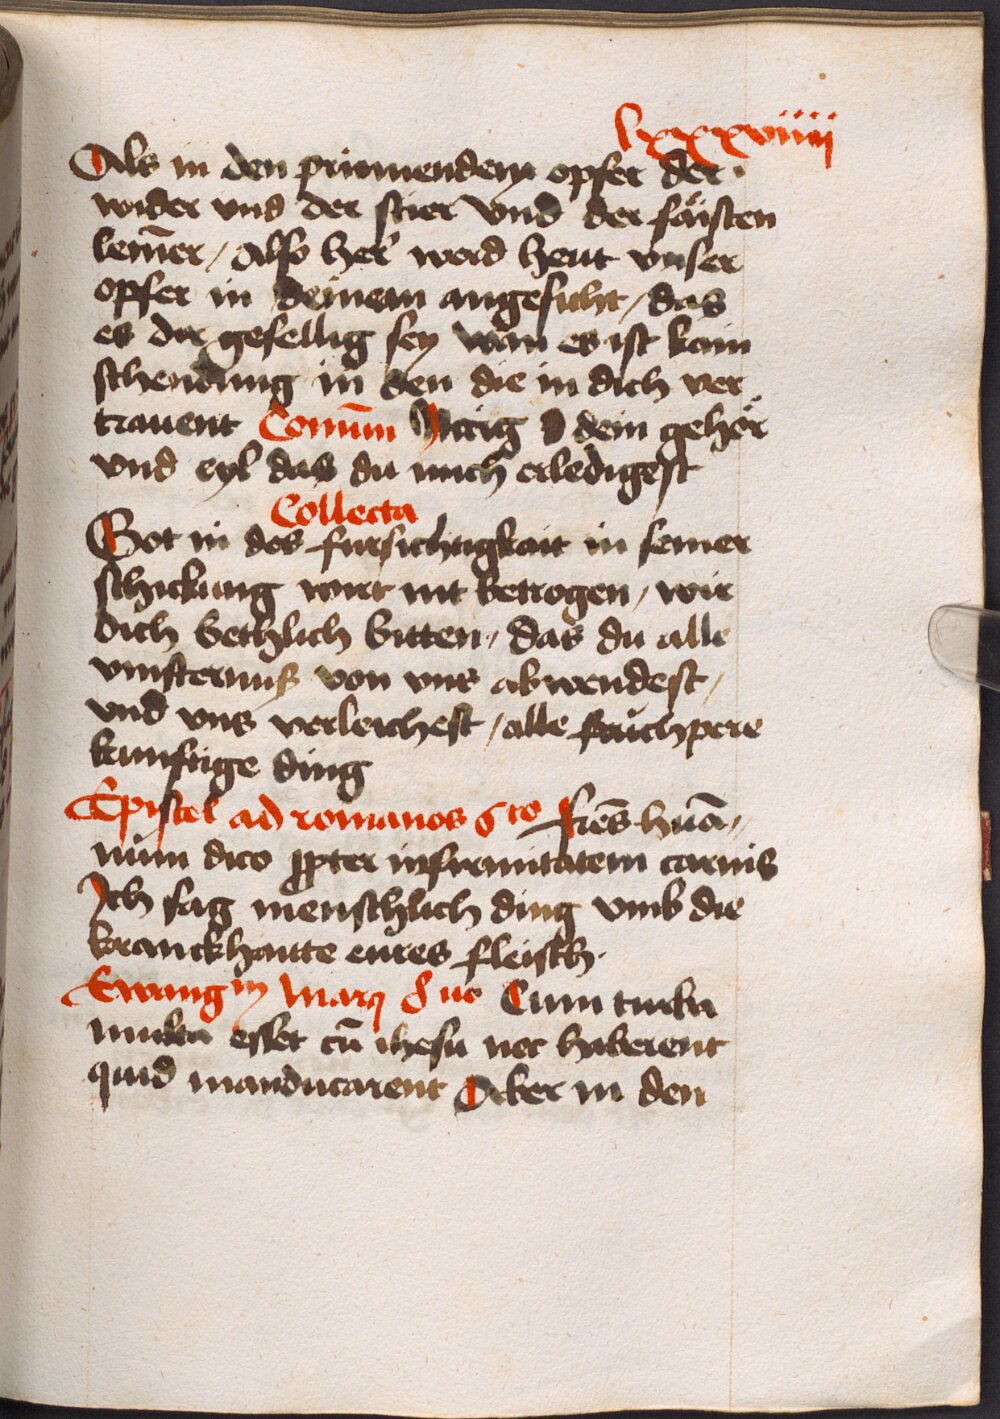 lxxxviiii
Als in den prinnendem opfer der
wider vnd der stier vnd der faͤisten
lem̄er / Also her' werd heut vnser
opfer in deinem angesicht / das
es dir gefellig sey wan̄ es ist kain
schendung in den die in dich ver
trauent Com̄un Naig dein gehoͤr
vnd eyl das du mich erledigest
Collecta
Got in des fursichtigkait in seiner
schickung wirt nit betrogen / wir
dich bethlich bitten / das du alle
vinsternuß von vns abwendest /
vnd vns verleichest / alle fruchpere
kunftige ding
Epistel ad romanos 6to Fr̄es hūa /
num dico ꝓpter infirmitatem carnis
Ich sag menschlich ding vmb die
kranckhaitte eures fleisch .
Ewangm Marcy 8uo Cum turba
multa esset cū ihesu nec haberent
quid manducarent Aber in den